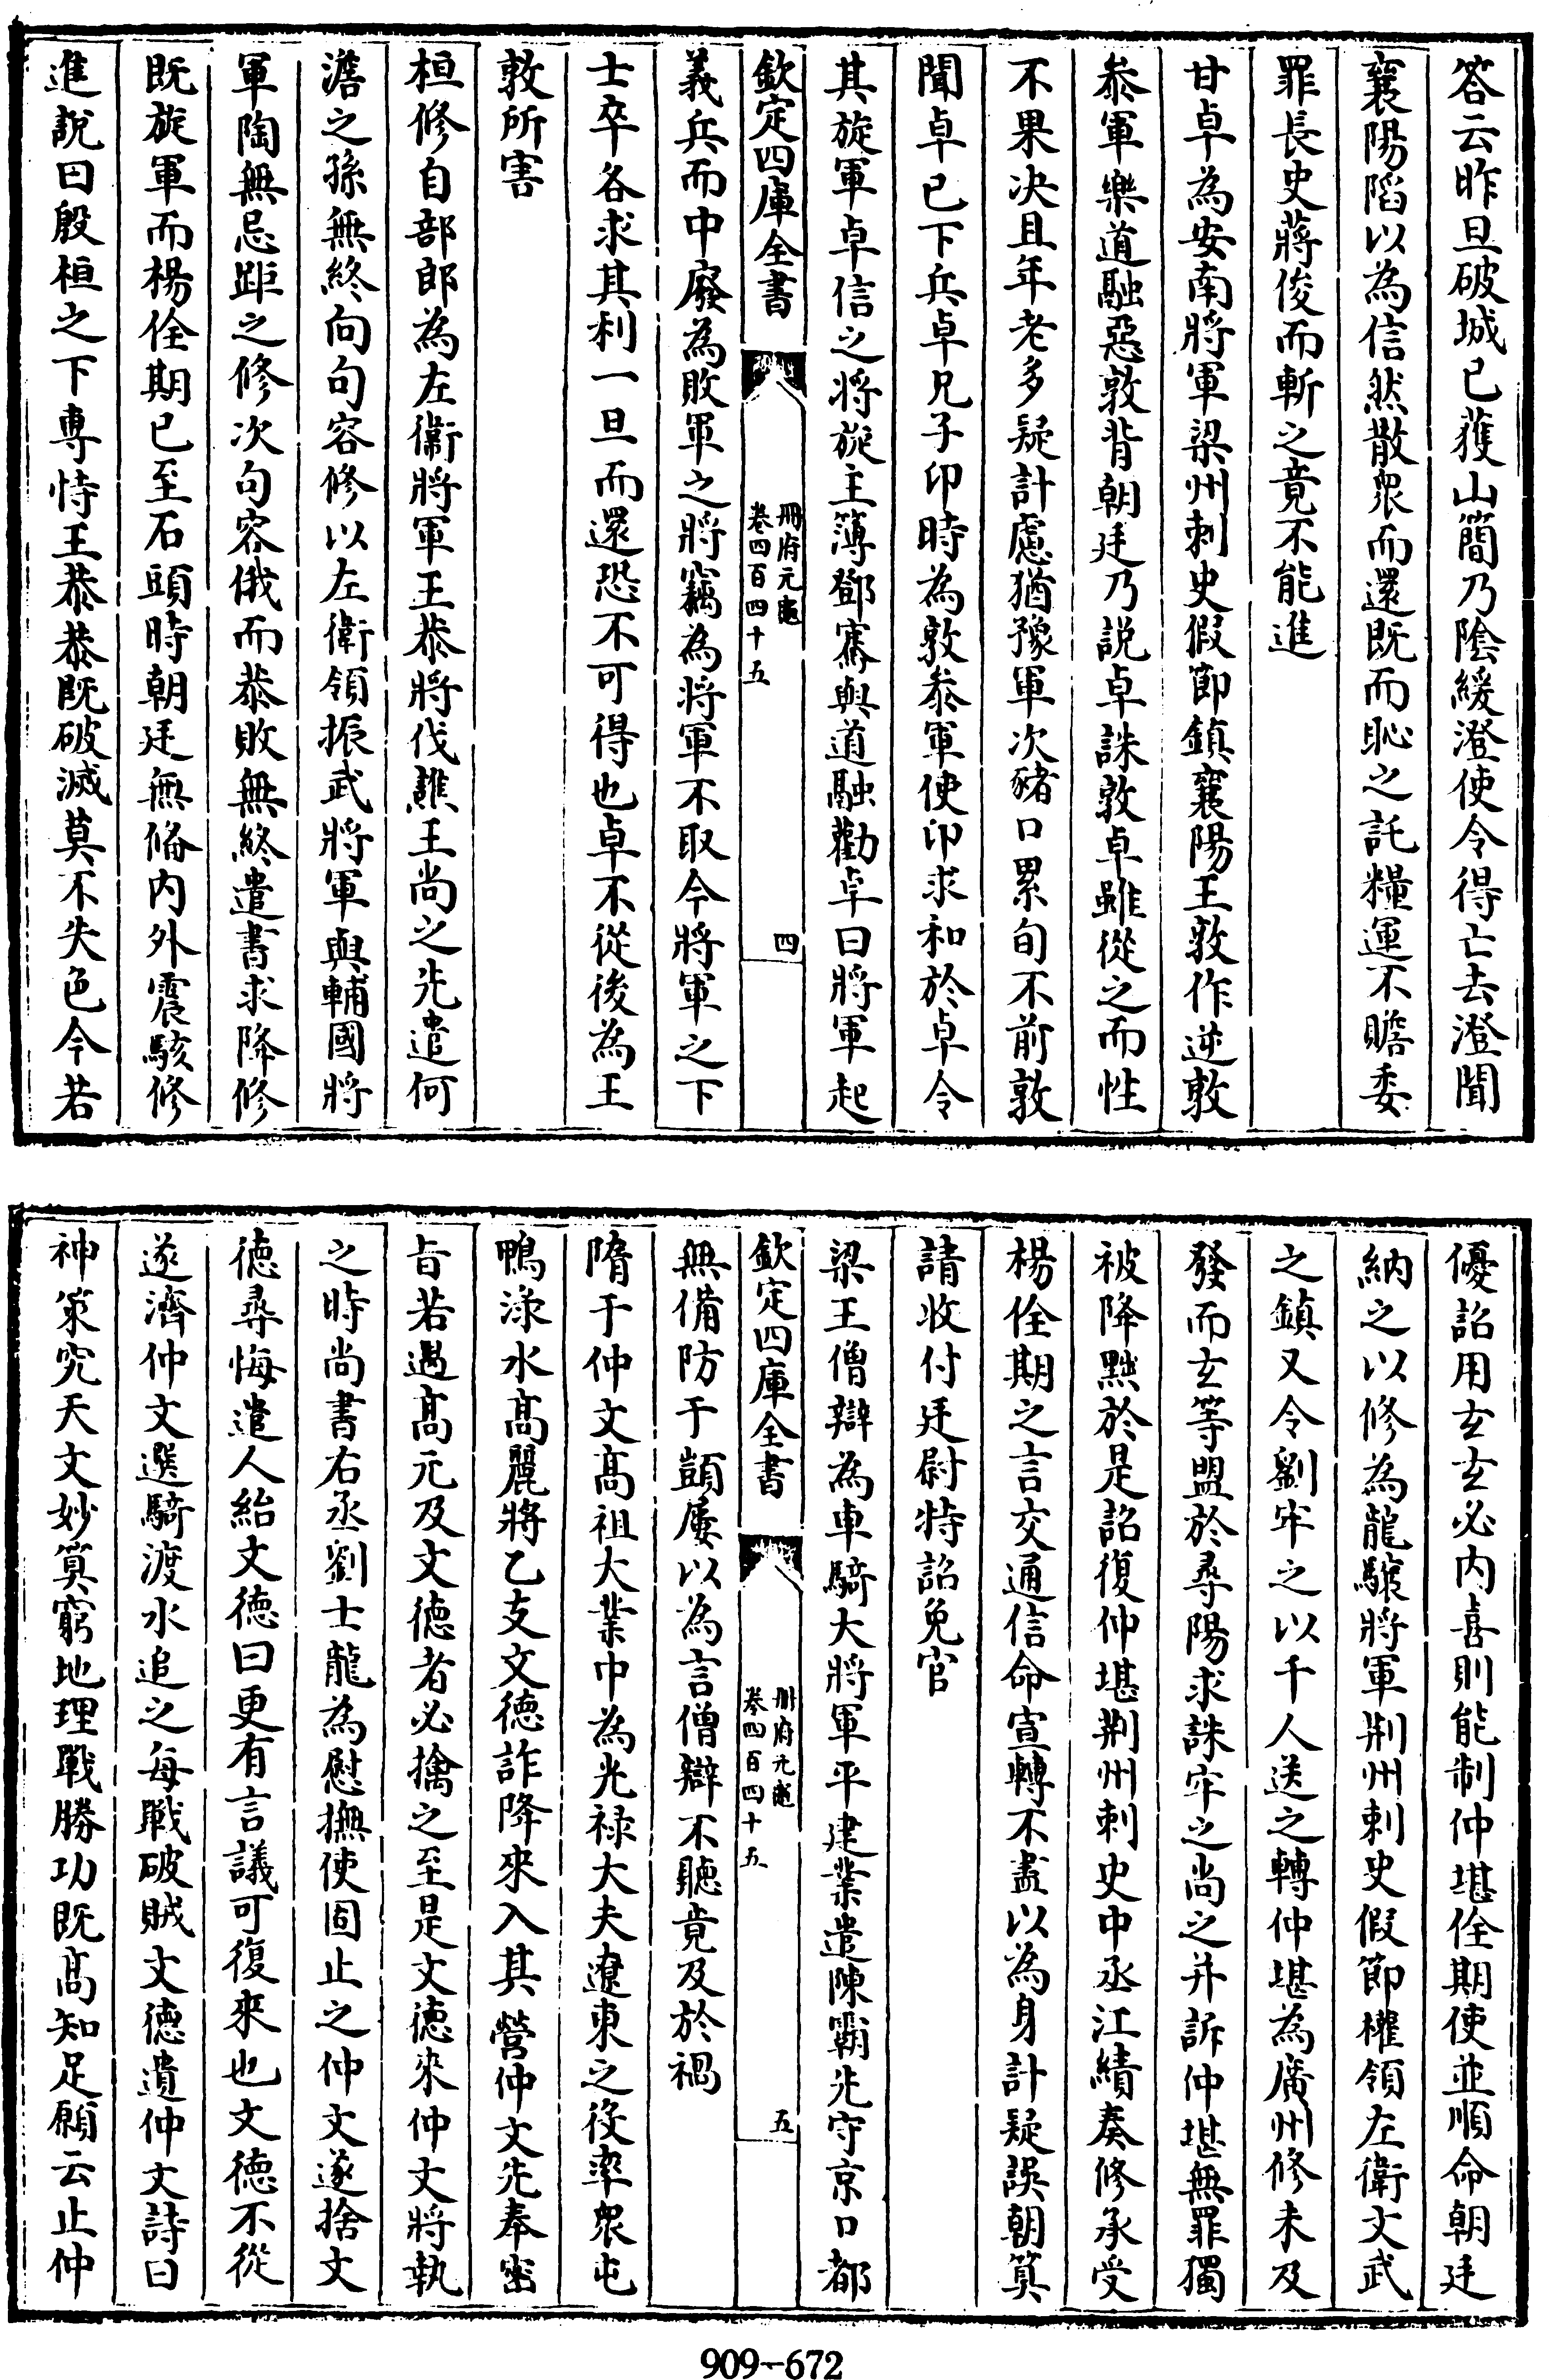 答云昨旦破城已獲山簡乃陰緩澄使令得亡去澄聞
襄陽陷以為信然散衆而還既而恥之託糧運不贍委
罪長史蔣俊而斬之竟不能進
甘卓為安南將軍梁州刺史假節鎮襄陽王敦作逆敦
叅軍樂道融惡敦背朝廷乃説卓誅敦卓雖從之而性
不果决且年老多疑計慮猶豫軍次豬口累旬不前敦
聞卓已下兵卓兄子卬時為敦叅軍使卬求和於卓令
其旋軍卓信之將旋主簿鄧騫與道融勸卓曰將軍起
欽定四庫全書
冊府元龜
卷四百四十五
四
義兵而中廢為敗軍之將竊為將軍不取今將軍之下
士卒各求其利一旦而還恐不可得也卓不從後為王
敦所害
桓修自部郎為左衞將軍王恭將伐譙王尚之先遣何
澹之孫無終向句容修以左衛領振武將軍與輔國將
軍陶無忌距之修次句容俄而恭敗無終遣書求降修
既旋軍而楊佺期已至石頭時朝廷無備内外震駭修
進說曰殷桓之下専恃王恭恭既破滅莫不失色今若
優詔用玄玄必内喜則能制仲堪佺期使並順命朝廷
納之以修為龍驤將軍荆州刺史假節權領左衛文武
之鎮又令劉牢之以千人送之轉仲堪為廣州修未及
發而玄等盟於尋陽求誅牢之尚之并訴仲堪無罪獨
被降黜於是詔復仲堪荆州刺史中丞江績奏修承受
楊佺期之言交通信命宣轉不盡以為身計疑誤朝筭
請收付廷尉特詔免官
梁王僧辯為車騎大將軍平建業遣陳霸先守京口都
欽定四庫全書
冊府元龜
卷四百四十五
五
無備防于顗屢以為言僧辯不聽竟及於禍
隋于仲文高祖大業中為光禄大夫遼東之役率衆屯
鴨淥水高麗將乙支文德詐降來入其營仲文先奉密
旨若遇高元及文德者必擒之至是文德來仲文將執
之時尚書右丞劉士龍為慰撫使固止之仲文遂捨文
德尋悔遣人紿文德曰更有言議可復來也文德不從
遂濟仲文選騎渡水追之每戰破賊文德遺仲文詩曰
神策究天文妙筭窮地理戰勝功既高知足願云止仲
909-672